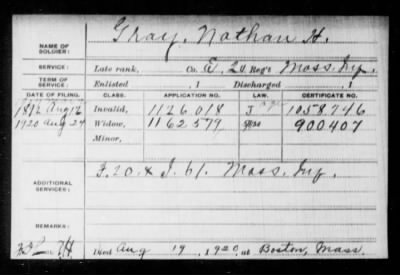 Gray, Nathan H.
NAME OF SOLDIER:
SERVICE: Late rank, Co. E, 20 Reg't Mass. Inf.
TERM OF SERVICE: Enlisted 1 Discharged 1
DATE OF FILING. CLASS. APPLICATION NO. LAW. CERTIFICATE NO.
1892 Aug 12 Invalid, 1126018 J 1058746
1920 Aug 24 Widow, 1162579 900407
Minor,
ADDITIONAL SERVICES: F. 20. & I. 61. Mass. Inf.
REMARKS:
Died Aug 19, 1920, at Boston, Mass.